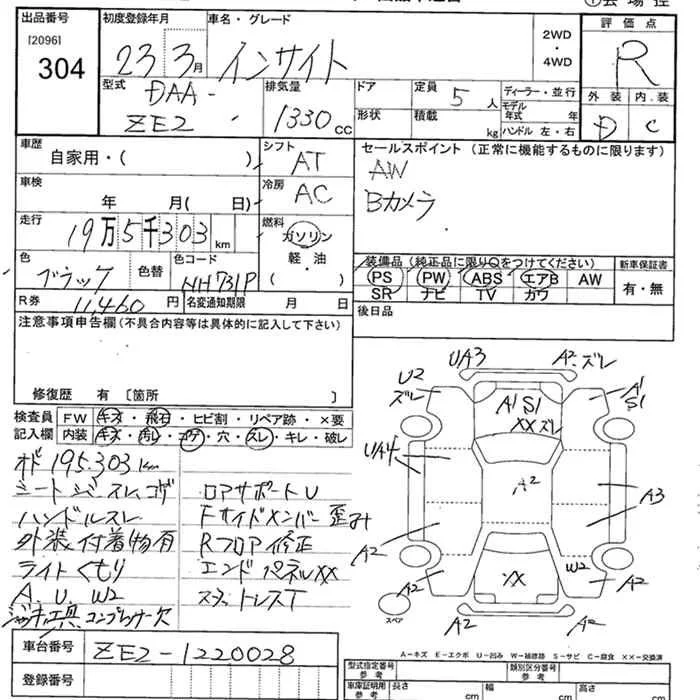 出品番号
[2096]
304
初度登録年月
23年 3月
車名・グレード
インサイト
2WD
・
4WD
評価点
R
外装 内装
D C
型式
DAA-
ZE2
排気量
1330cc
ドア
形状
定員
5人
積載
kg
ディーラー・並行
モデル
年式 年
ハンドル 左・右
車歴
自家用・( )
シフト
AT
車検
年 月( 日)
冷房
AC
セールスポイント (正常に機能するものに限ります)
AW
Bカメラ
走行
19万5千303km
燃料
ガソリン
軽・油
色
ブラック
色替
色コード
NH731P
装備品 (純正品に限りOをつけてください)
PS PW ABS エアB AW
SR ナビ TV カワ
新車保証書
有・無
R券
11,460円
名変通知期限 月 日
後日品
注意事項申告欄 (不具合内容等は具体的に記入して下さい)
修復歴 有 〔箇所 〕
検査員
記入欄
FW キズ・飛石・ヒビ割・リペア跡・×要
内装 キズ・汚レ・コゲ・穴・スレ・キレ・破レ
オド195.303km
シート ジミ スレ コゲ
ハンドルスレ
外装付着物有
ライトくもり
A. U. W2
ジャッキ工具 コンプレッサー欠
ロアサポートU
Fサイドメンバー歪み
Rフロア修正
エンドパネルXX
UA3
A2 ズレ
U2
ズレ
A1
S1
A1 S1
XX ズレ
UA4
A2
A3
A2
W2
A2
XX
A2
A2
A2
スペア
A-キズ E-エクボ U-凹み W-補修跡 S-サビ C-腐食 ××-交換済
車台番号
ZE2-1220028
登録番号
型式指定番号
参考
類別区分番号
参考
車庫証明用
参考
長さ cm
幅 cm
高さ cm